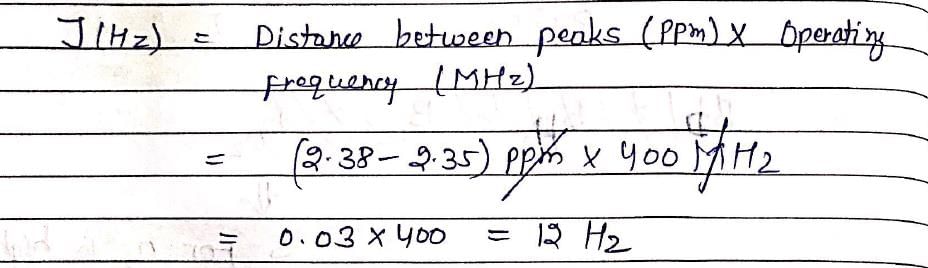 J(Hz) = Distance between peaks (PPm) X Operating
frequency (MHz)
= (2.38-2.35) ppm x 400 MHz
= 0.03 x 400 = 12 Hz